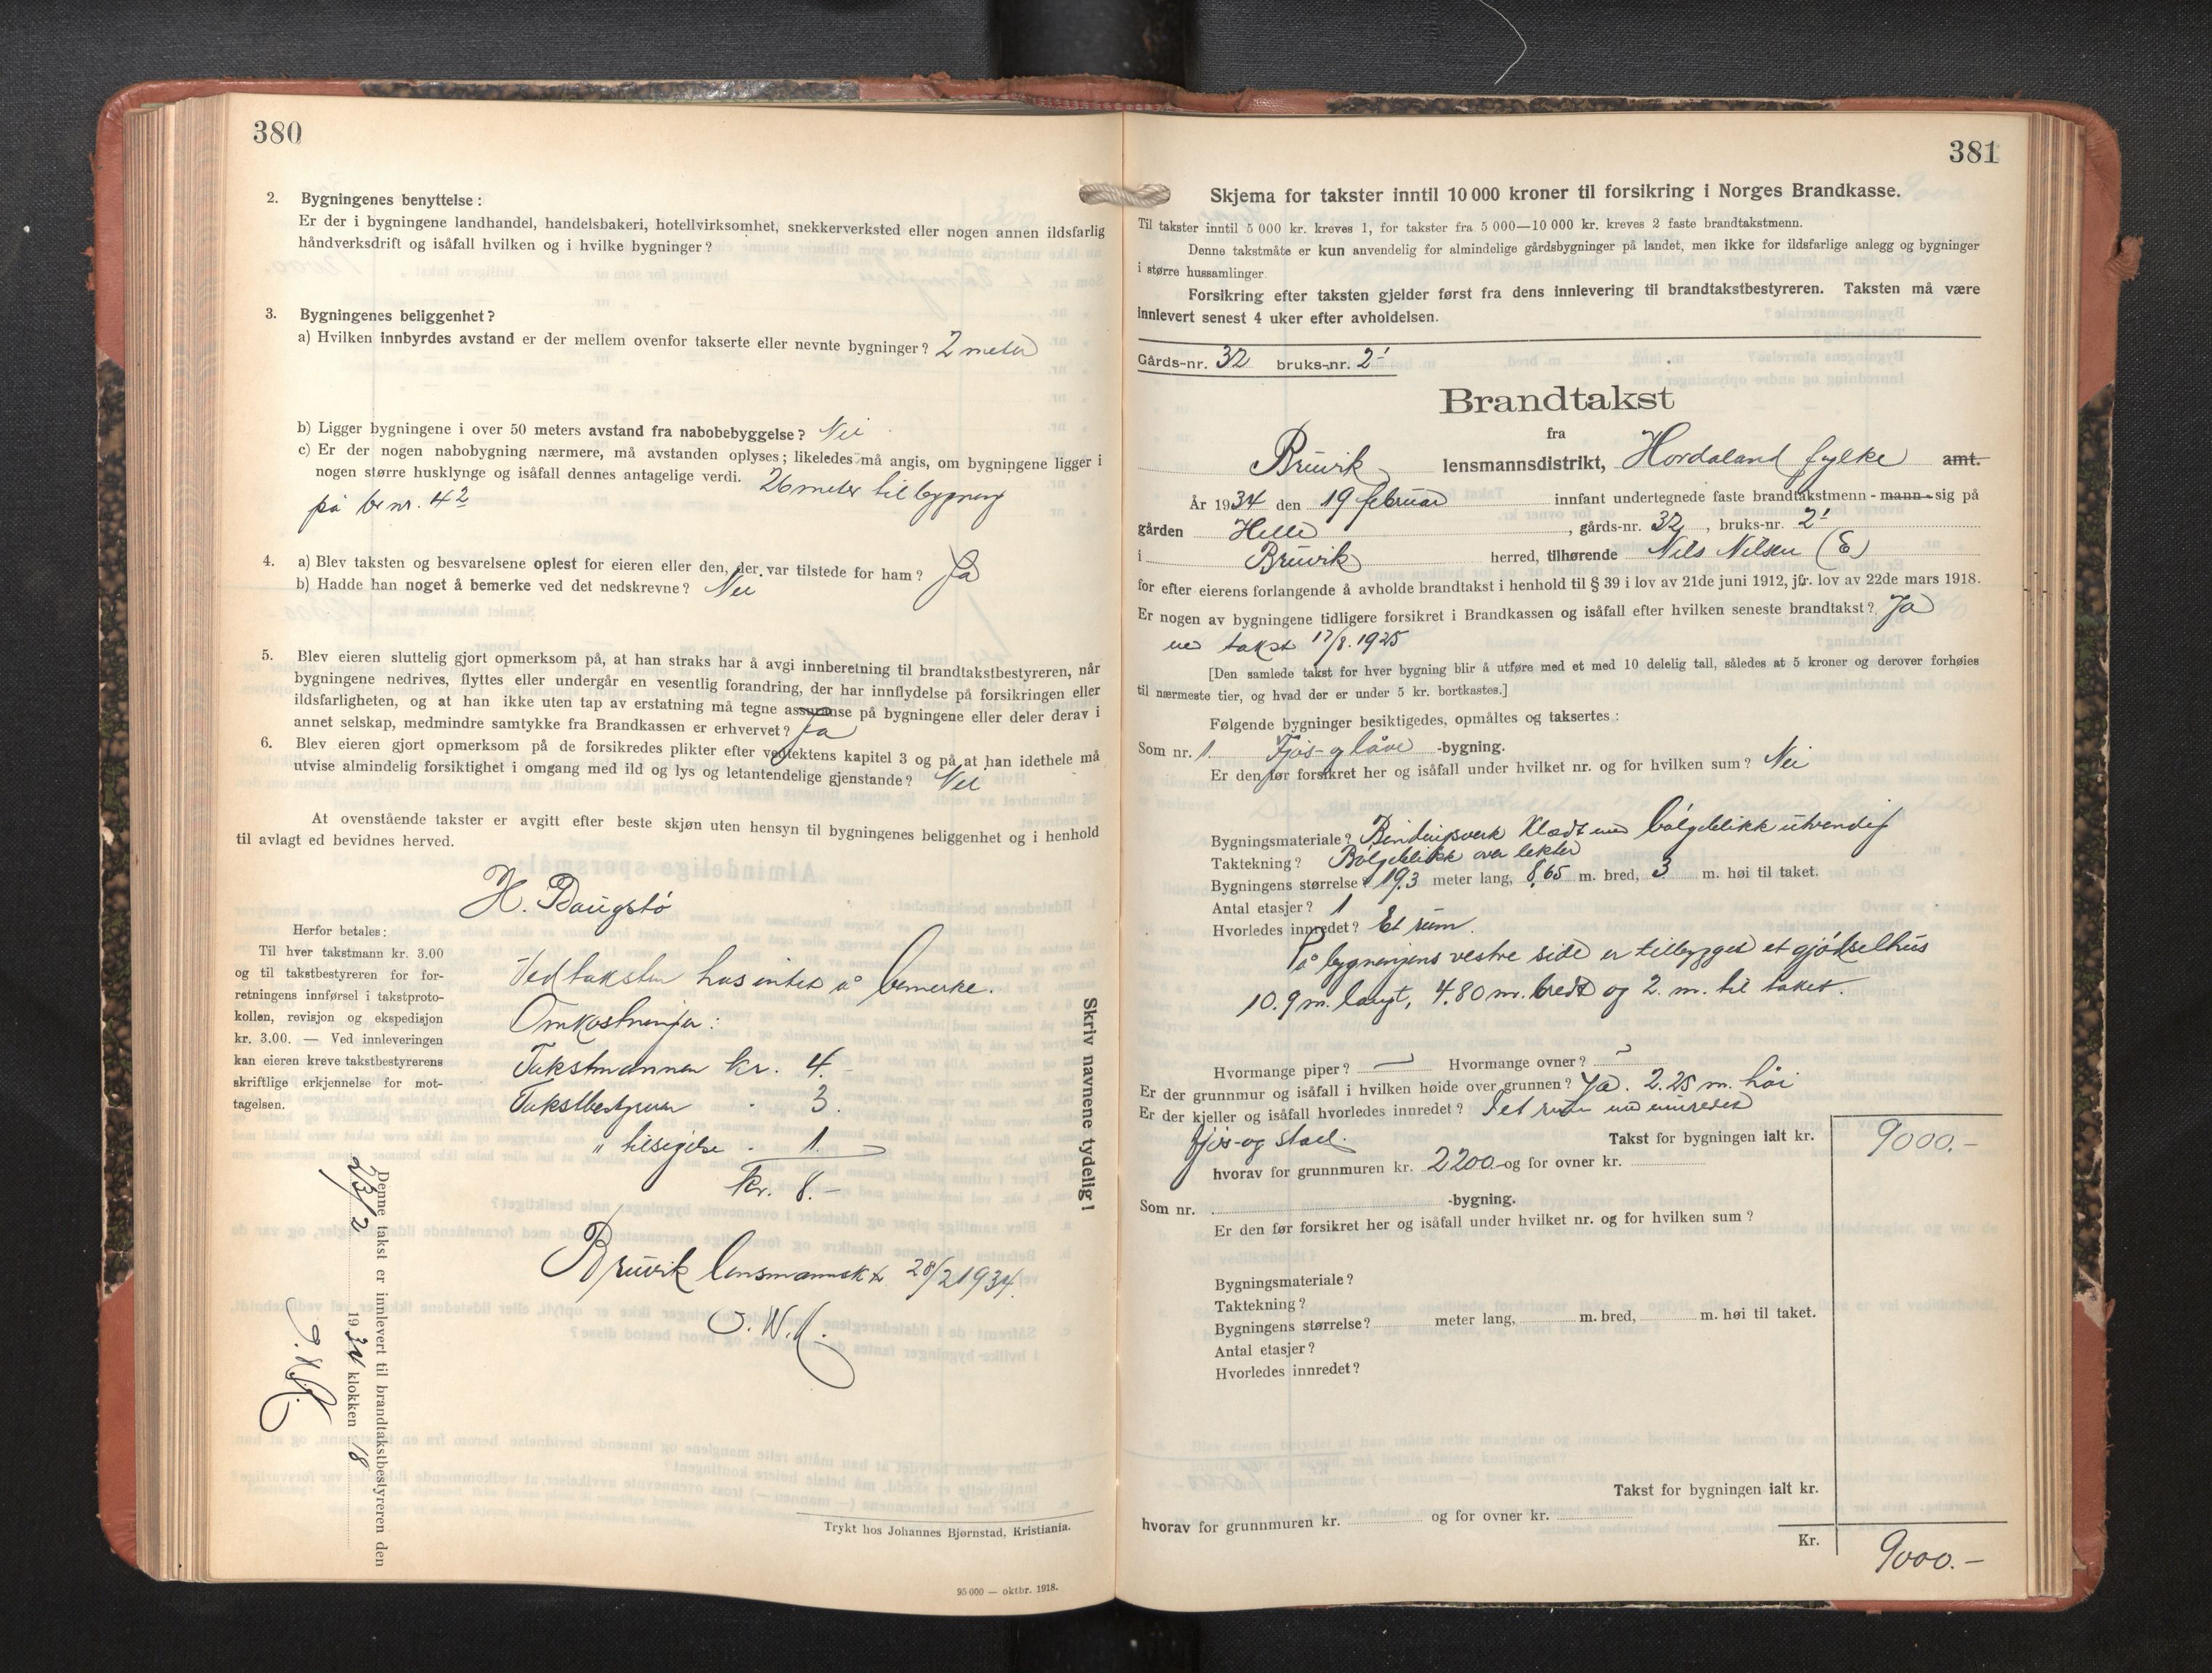 380
2. Bygningenes benyttelse :
Er der i bygningene landhandel, handelsbakeri, hotellvirksomhet, snekkerverksted eller nogen annen ildsfarlig
håndverksdrift og isåfall hvilken og i hvilke bygninger ?
3. Bygningenes beliggenhet ?
a) Hvilken innbyrdes avstand er der mellem ovenfor takserte eller nevnte bygninger ? 2 meter
b) Ligger bygningene i over 50 meters avstand fra nabobebyggelse ? Nei
c) Er der nogen nabobygning nærmere, må avstanden oplyses ; likeledes må angis, om bygningene ligger i
nogen større husklynge og isåfall dennes antagelige verdi. 26 meter til bygning
på br nr. 4²
4. a) Blev taksten og besvarelsene oplest for eieren eller den, der var tilstede for ham ? Ja
b) Hadde han noget å bemerke ved det nedskrevne ? Nei
5. Blev eieren sluttelig gjort opmerksom på, at han straks har å avgi innberetning til brandtakstbestyreren, når
bygningene nedrives, flyttes eller undergår en vesentlig forandring, der har innflydelse på forsikringen eller
ildsfarligheten, og at han ikke uten tap av erstatning må tegne assuranse på bygningene eller deler derav i
annet selskap, medmindre samtykke fra Brandkassen er erhvervet ? Ja
6. Blev eieren gjort opmerksom på de forsikredes plikter efter vedtektens kapitel 3 og på at han idethele må
utvise almindelig forsiktighet i omgang med ild og lys og letantendelige gjenstande ? Nei
At ovenstående takster er avgitt efter beste skjøn uten hensyn til bygningenes beliggenhet og i henhold
til avlagt ed bevidnes herved.
H. Daugstø
Herfor betales :
Til hver takstmann kr. 3.00
og til takstbestyreren for for-
retningens innførsel i takstproto-
kollen, revisjon og ekspedisjon
kr. 3.00. — Ved innleveringen
kan eieren kreve takstbestyrerens
skriftlige erkjennelse for mot-
tagelsen.
Ved taksten has intet å bemerke.
Omkostninger :
Takstmannen kr. 4.-
Takstbestyreren - 3.
" tilsigelse - 1.
Kr. 8.-
Bruvik lensmannsk. 28/2 1934.
Skriv navnene tydelig !
Denne takst er innlevert til brandtakstbestyreren den
23/2 1934 klokken 18
Trykt hos Johannes Bjørnstad, Kristiania.
95 000 — oktbr. 1918.
381
Skjema for takster inntil 10 000 kroner til forsikring i Norges Brandkasse.
Til takster inntil 5 000 kr. kreves 1, for takster fra 5 000—10 000 kr. kreves 2 faste brandtakstmenn.
Denne takstmåte er kun anvendelig for almindelige gårdsbygninger på landet, men ikke for ildsfarlige anlegg og bygninger
i større hussamlinger.
Forsikring efter taksten gjelder først fra dens innlevering til brandtakstbestyreren. Taksten må være
innlevert senest 4 uker efter avholdelsen.
Gårds-nr. 32 bruks-nr. 2'
Brandtakst
fra
Bruvik lensmannsdistrikt, Hordaland fylke amt.
År 1934 den 19 februar innfant undertegnede faste brandtakstmenn - mann - sig på
gården Helle, gårds-nr. 32, bruks-nr. 2'
i Bruvik herred, tilhørende Nils Nilsen (E)
for efter eierens forlangende å avholde brandtakst i henhold til § 39 i lov av 21de juni 1912, jfr. lov av 22de mars 1918.
Er nogen av bygningene tidligere forsikret i Brandkassen og isåfall efter hvilken seneste brandtakst ? Ja
ved takst 17/8. 1925
[Den samlede takst for hver bygning blir å utføre med et med 10 delelig tall, således at 5 kroner og derover forhøies
til nærmeste tier, og hvad der er under 5 kr. bortkastes.]
Følgende bygninger besiktigedes, opmåltes og taksertes :
Som nr. 1. Fjøs- og låve -bygning.
Er den før forsikret her og isåfall under hvilket nr. og for hvilken sum ? Nei
Bygningsmateriale ? Bindingsverk klædt med bølgeblikk utvendig
Taktekning ? Bølgeblikk over lekter
Bygningens størrelse ? 19,3 meter lang, 8,65 m. bred, 3 m. høi til taket.
Antal etasjer ? 1
Hvorledes innredet ? Et rum.
På bygningens vestre side er tilbygget et gjødselhus
10.9 m. langt, 4.80 m. bredt og 2. m. til taket.
Hvormange piper ? — Hvormange ovner ?
Er der grunnmur og isåfall i hvilken høide over grunnen ? Ja. 2.25 m. høi
Er der kjeller og isåfall hvorledes innredet ? I et rum med innredet
fjøs- og stall.
Takst for bygningen ialt kr. 9000.-
hvorav for grunnmuren kr. 2200 og for ovner kr.
Som nr. -bygning.
Er den før forsikret her og isåfall under hvilket nr. og for hvilken sum ?
Bygningsmateriale ?
Taktekning ?
Bygningens størrelse ? meter lang, m. bred, m. høi til taket.
Antal etasjer ?
Hvorledes innredet ?
Takst for bygningen ialt kr.
hvorav for grunnmuren kr. og for ovner kr.
Kr. 9000.-